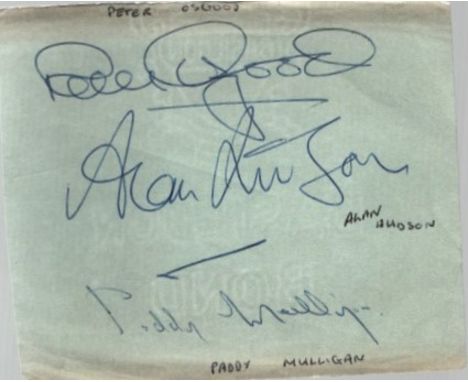 PETER OSGOOD
Peter Osgood
Alan Hudson
ALAN
HUDSON
Paddy Mulligan
PADDY MULLIGAN